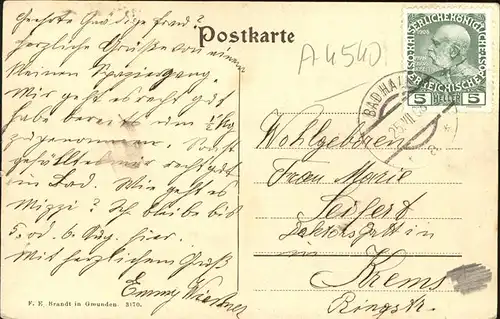 Geehrte Gnädige Frau!
Herzliche Grüße von einem
kleinen Spaziergang.
Mir geht es recht gut
habe bereits den ½ Kg
zugenommen. Sonst
gefällt es mir recht gut
in Bad. Wie geht es
Mizzi? Ich bleibe bis
5. od. 6. Aug. hier.
Mit herzlichem Gruß
Emmy
F. E. Brandt in Gmunden. 3170.
Postkarte
A 4540
KAISERLICHE KÖNIGLICHE
ÖSTERREICHISCHE
1908
5 HELLER 5
BAD HALL
25.VII
Wohlgeboren
Frau Marie
Seifert
Doktorsgattin
in
Krems
Ringstr.